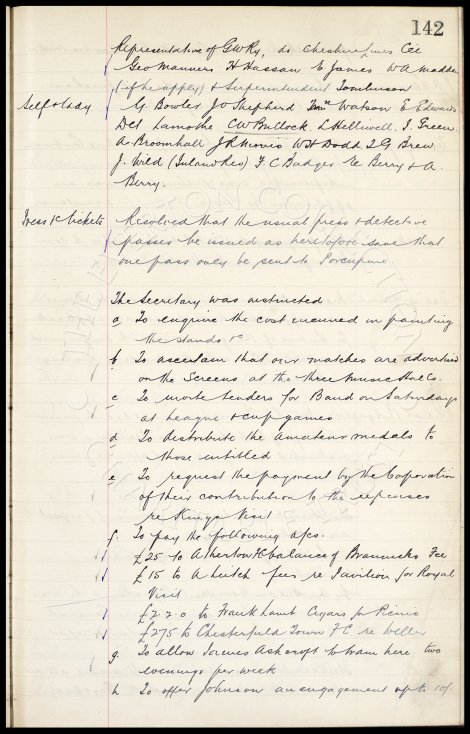 142
Representative of GWRy, do Cheshire Lines Cee
Geo Manners H Hassan E James W A Madden
(if he apply) & Superintendent Tomlinson
Self & lady G. Bowler J O Shepherd Watson E Edwards
Del Lamothe C W Bullock L Helliwell, J. Green
A Broomhall J H Morris W H Dodd J G Brew
J. Wild (Inland Rev) F C Badger E Berry & A.
Berry.
Press &c tickets Resolved that the usual press & detective
passes be issued as heretofore save that
one pass only be sent to Porcupine.
The Secretary was instructed
a To enquire the cost incurred in painting
the stands &c
b To ascertain that our matches are advertised
on the Screens at the three Music Hal Co.
c To invite tenders for Band on Saturdays
at league & cup games
d To distribute the amateur medals to
those entitled
e To request the payment by the Corporation
of their contribution to the expenses
re Kings Visit
f. To pay the following a/cs.
£25 to Atherton FC balance of Fee
£15 to A Leitch fees re Pavilion for Royal
Visit
£2.2.0 to Frank Lamb Cigars for Picnic
£275 to Chesterfield Town F C re
g. To allow James Ashcroft to train here two
evenings per week
h. To offer Johnson an engagement up to 10/